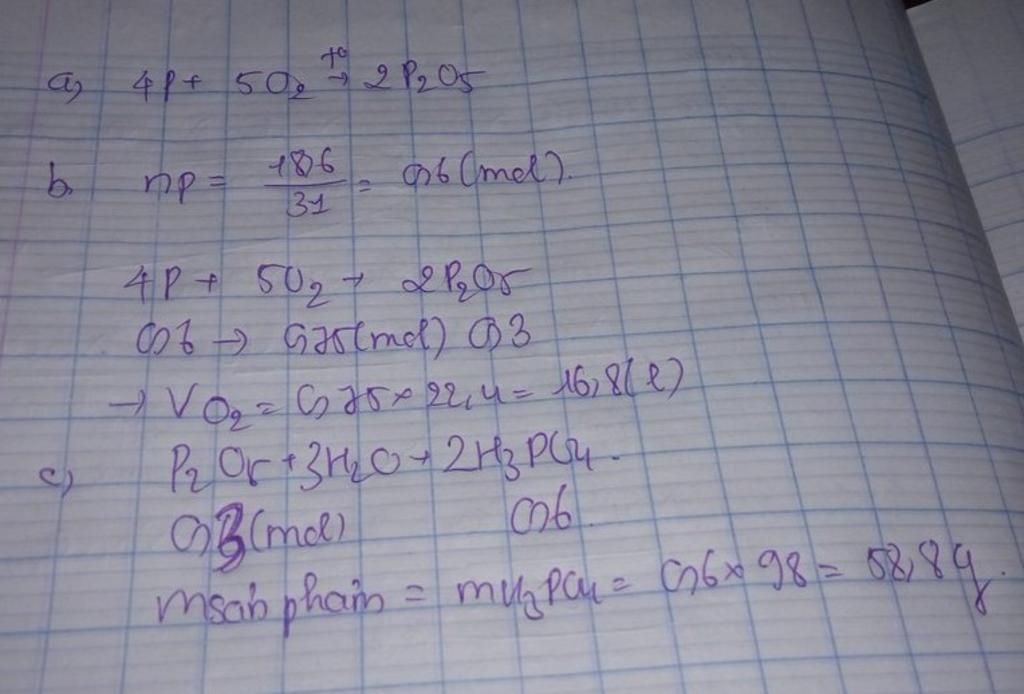 a) 4P + 5O₂ →(t°) 2P₂O₅
b. nP = 18,6/31 = 0,6 (mol).
4P + 5O₂ → 2P₂O₅
0,6 → 0,75 (mol) 0,3
→ V O₂ = 0,75 × 22,4 = 16,8 (l)
c) P₂O₅ + 3H₂O → 2H₃PO₄.
0,3 (mol) 0,6.
msản phẩm = mH₃PO₄ = 0,6 × 98 = 58,8g.